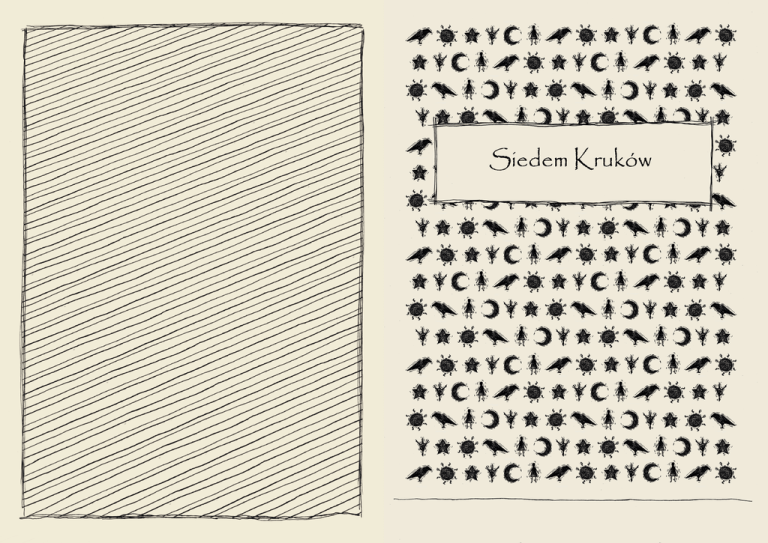 Siedem Kruków